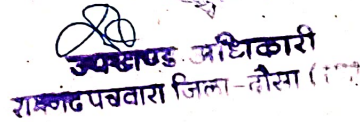 उपखण्ड अधिकारी
रामगढ पचवारा जिला-दौसा (